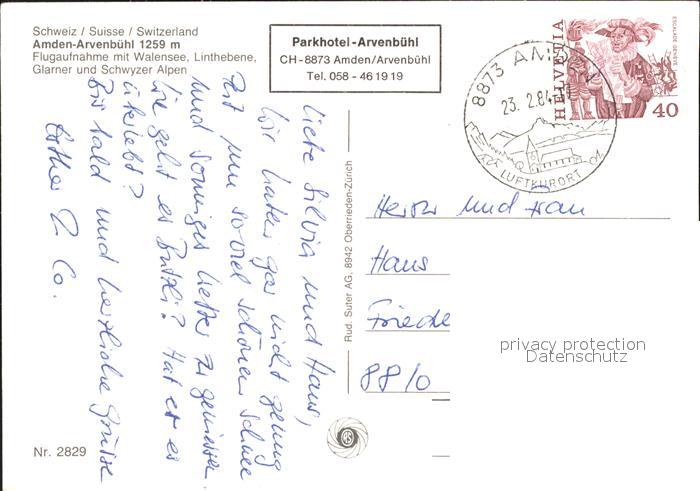 Schweiz / Suisse / Switzerland
Amden-Arvenbühl 1259 m
Flugaufnahme mit Walensee, Linthebene,
Glarner und Schwyzer Alpen
Parkhotel-Arvenbühl
CH-8873 Amden/Arvenbühl
Tel. 058 - 46 19 19
8873 AMDEN
23. 2. 84
LUFTKURORT
HELVETIA
ESCALADE GENÈVE
40
Liebe Silvia und Haus,
Wir haben gar nicht genug
Zeit um so viel schönen Schnee
und sonniges Wetter zu geniessen.
Wie geht es Butzli? Hat er es
überlebt?
Bis bald und herzliche Grüsse
Esther & Co.
Rud. Suter AG, 8942 Oberrieden-Zürich
Herr und Frau
Hans
Friede
8810
privacy protection
Datenschutz
Nr. 2829